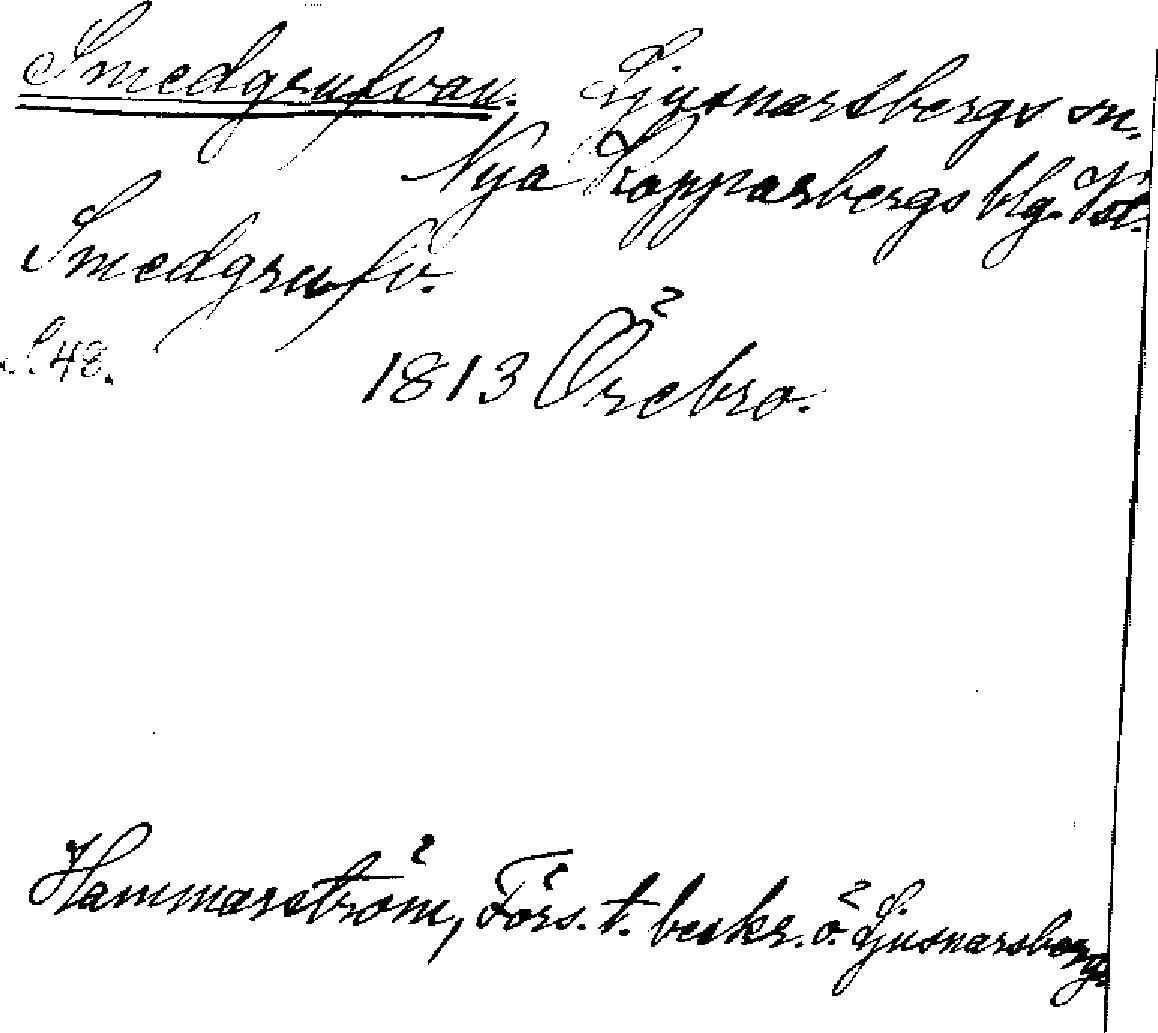 Smedgrufvan. Ljusnarsbergs sn.
Nya Kopparbergs blg. Vst.
Smedgrufv.
S. 48.
1813 Örebro.
Hammarström, Förs. t. beskr. ö. Ljusnarsberg.